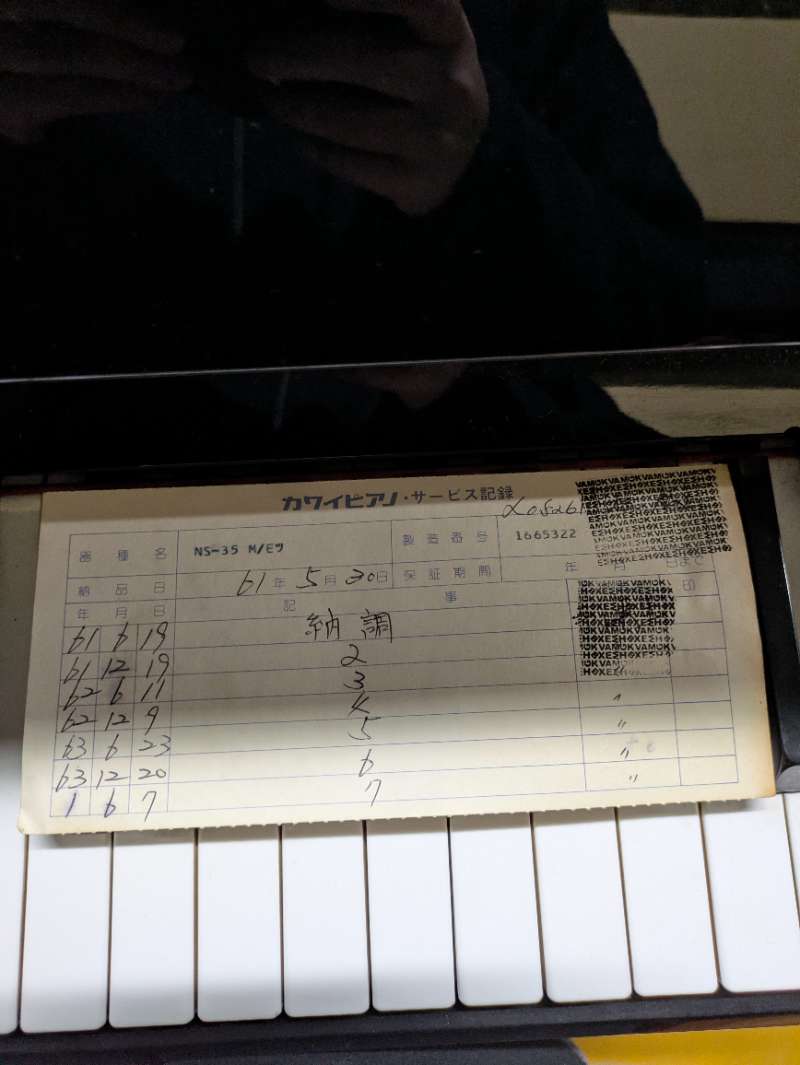 カワイピアノ・サービス記録
品種名 NS-35 M/Eク 製造番号 1665322
納品日 61年5月30日 保証期間 年 月 日まで
年 月 日 記事 印
61 6 19 納調
61 12 19 2 〃
62 6 11 3
62 12 9 4 〃
63 6 23 5 〃
63 12 20 6 〃
1 6 7 7 〃